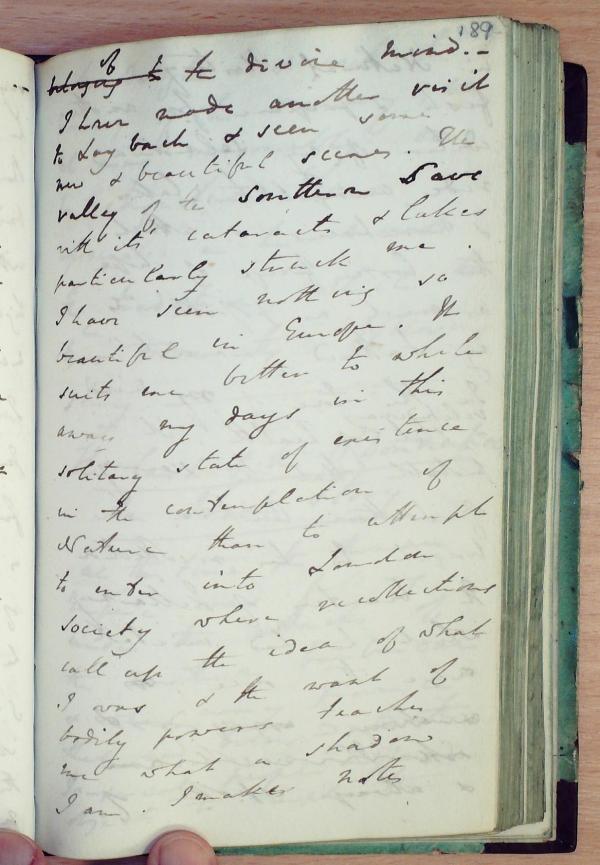 189
of
belonging to the divine mind.-
I have made another visit
to Laybach & seen some
new & beautiful scenes. The
valley of the Southern Save
with its cataracts & lakes
particularly struck me.
I have seen nothing so
beautiful in Europe. It
suits me better to while
away my days in this
solitary state of existence
in the contemplation of
Nature than to attempt
to enter into London
society where recollections
call up the idea of what
I was & the want of
bodily powers teaches
me what a shadow
I am. I make notes